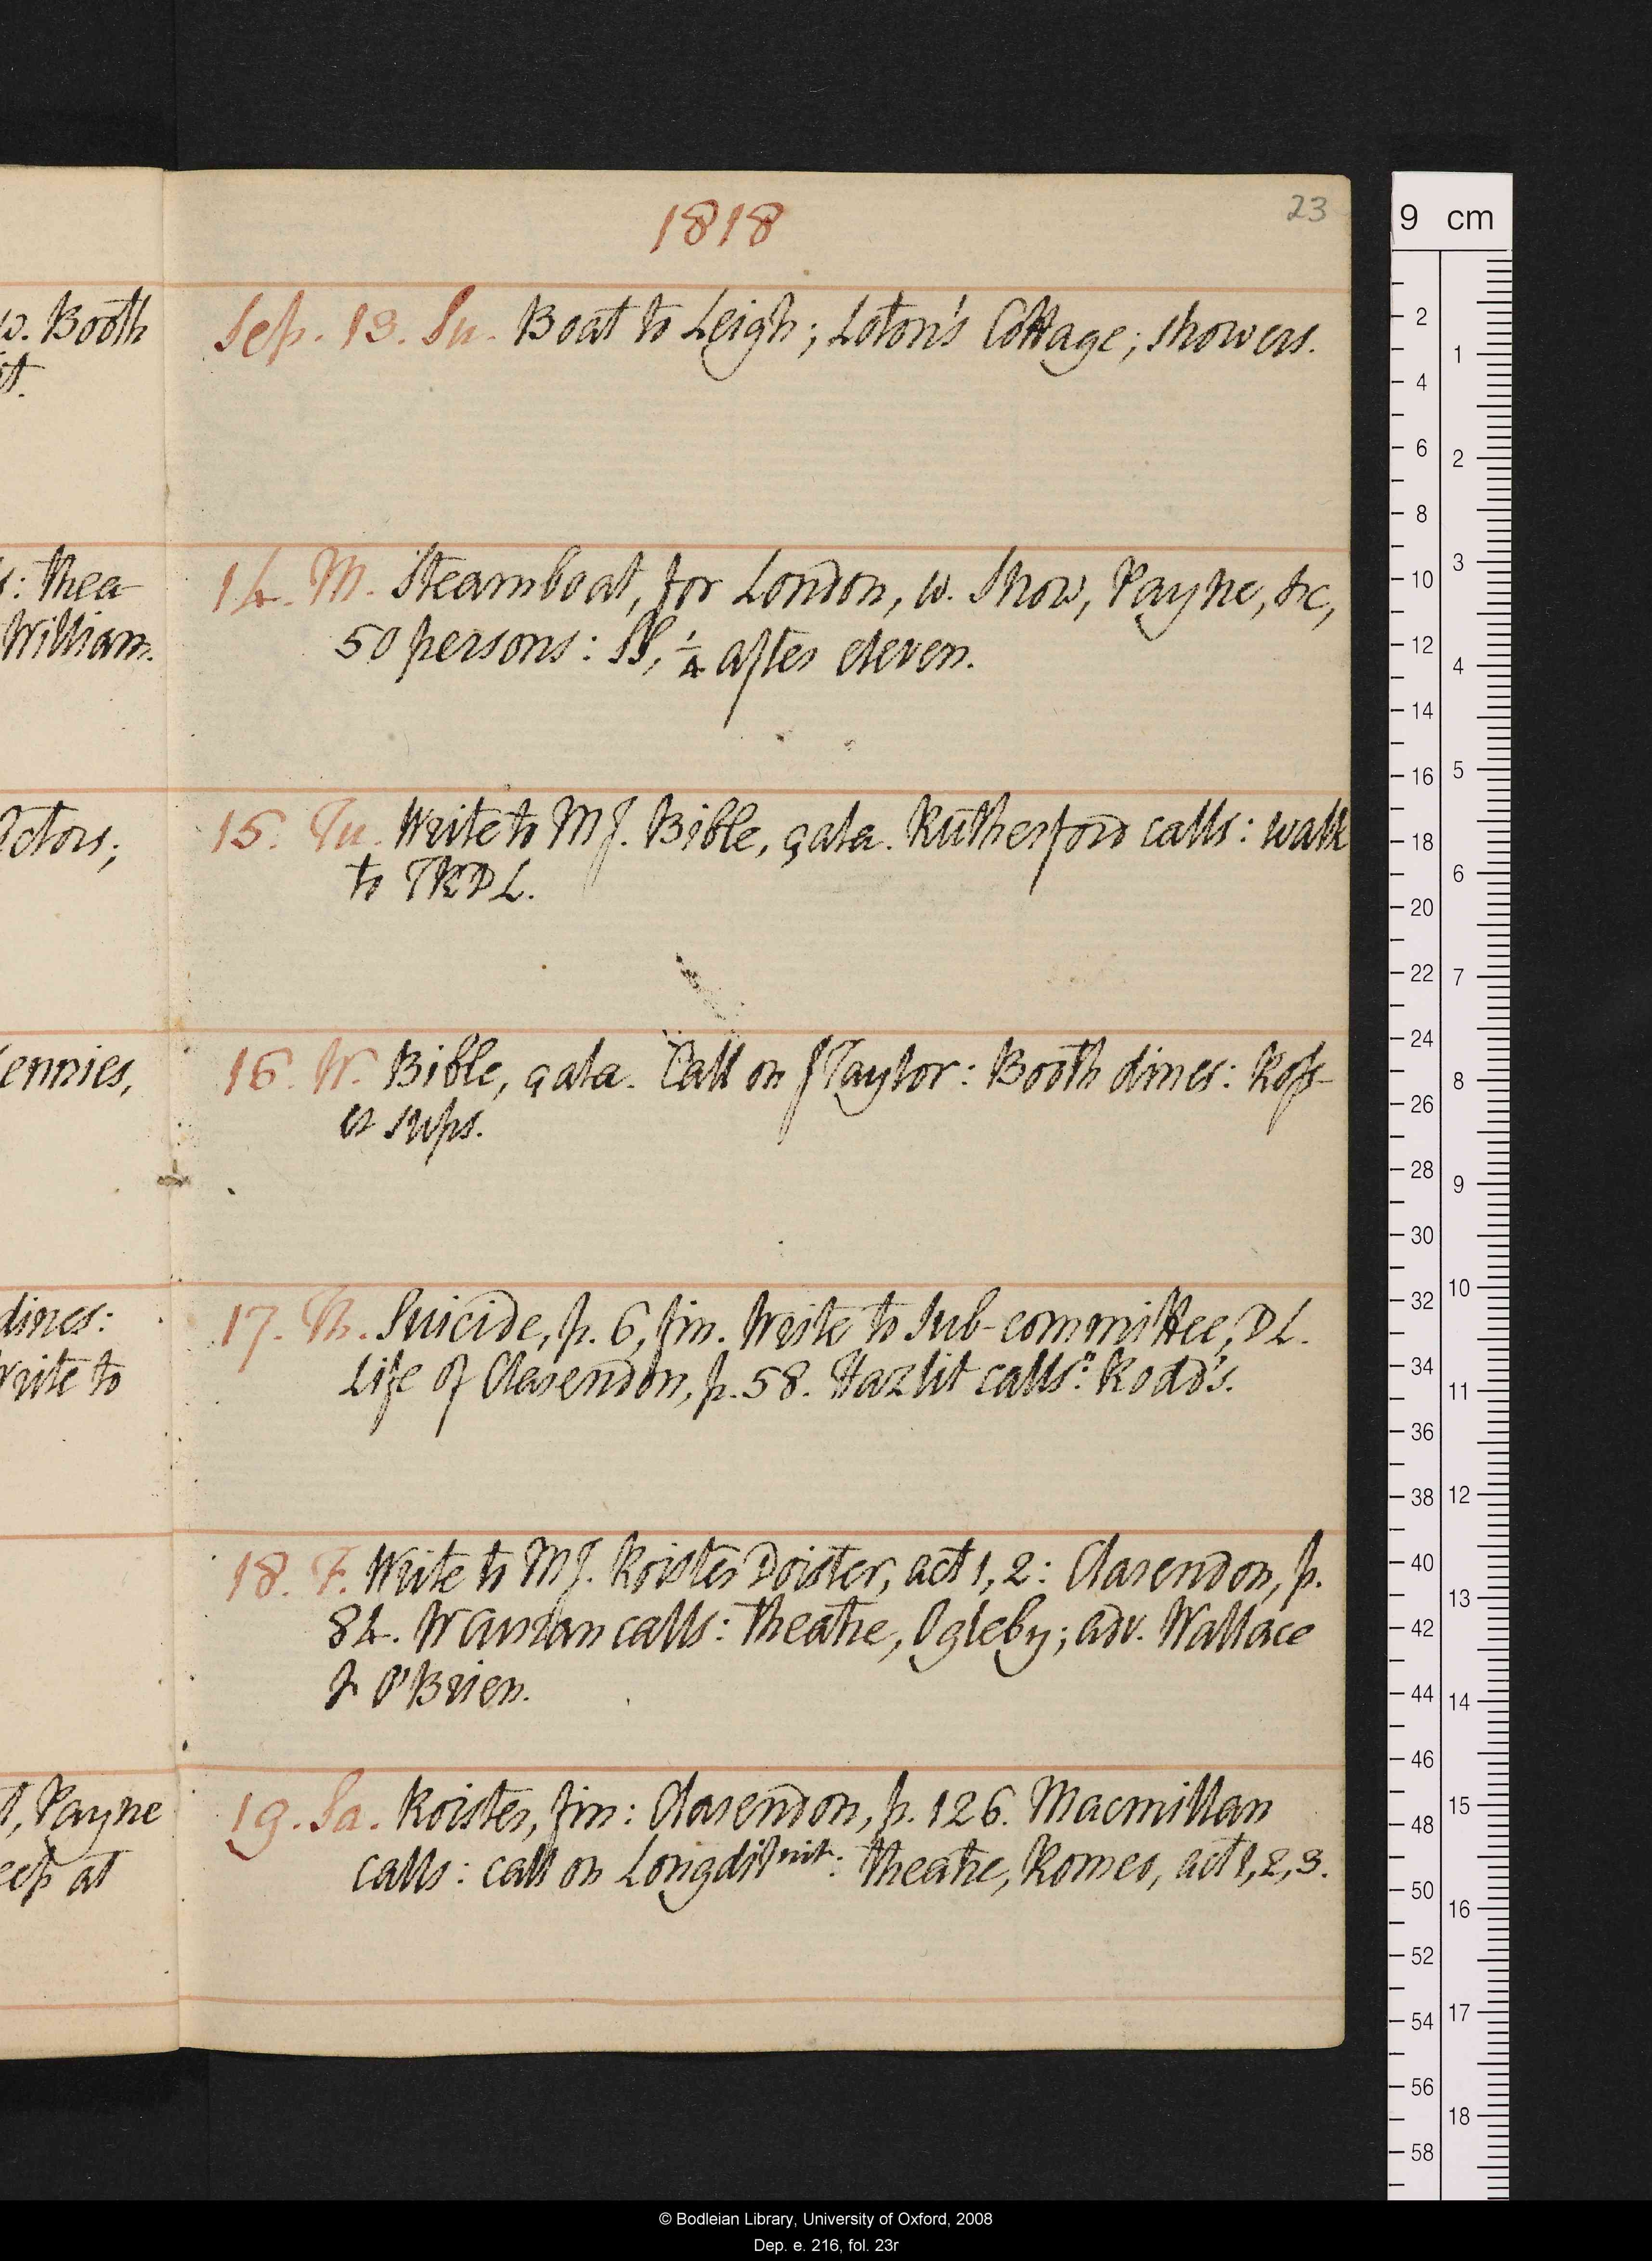 1818
23
w. Booth
Sep. 13. Su. Boat to Leigh; Loton's Cottage; showers.
: Thea-
William.
14. M. Steamboat, for London, w. Show, Payne, &c,
50 persons: SS, ¼ after eleven.
Actors;
15. Tu. Write to MJ. Bible, çala. Rutherford calls: walk
to TRDL.
ennies,
16. W. Bible, çala. Call on JTaylor: Booth dines: Ross-
er sups.
dines:
write to
17. Th. Suicide, p. 6, fin. Write to Sub-committee, DL.
Life of Clarendon, p. 58. Hazlit calls: Rodd's.
18. F. Write to MJ. Roister Doister, act 1, 2: Clarendon, p.
84. W Curran calls: theatre, Ogleby; adv. Wallace
& O'Brien.
, Payne
eep at
19. Sa. Roister, fin: Clarendon, p. 126. Macmillan
calls: call on Longdill nit: theatre, Romeo, act 1, 2, 3.
9 cm
2
4
6
8
10
12
14
16
18
20
22
24
26
28
30
32
34
36
38
40
42
44
46
48
50
52
54
56
58
1
2
3
4
5
6
7
8
9
10
11
12
13
14
15
16
17
18
© Bodleian Library, University of Oxford, 2008
Dep. e. 216, fol. 23r